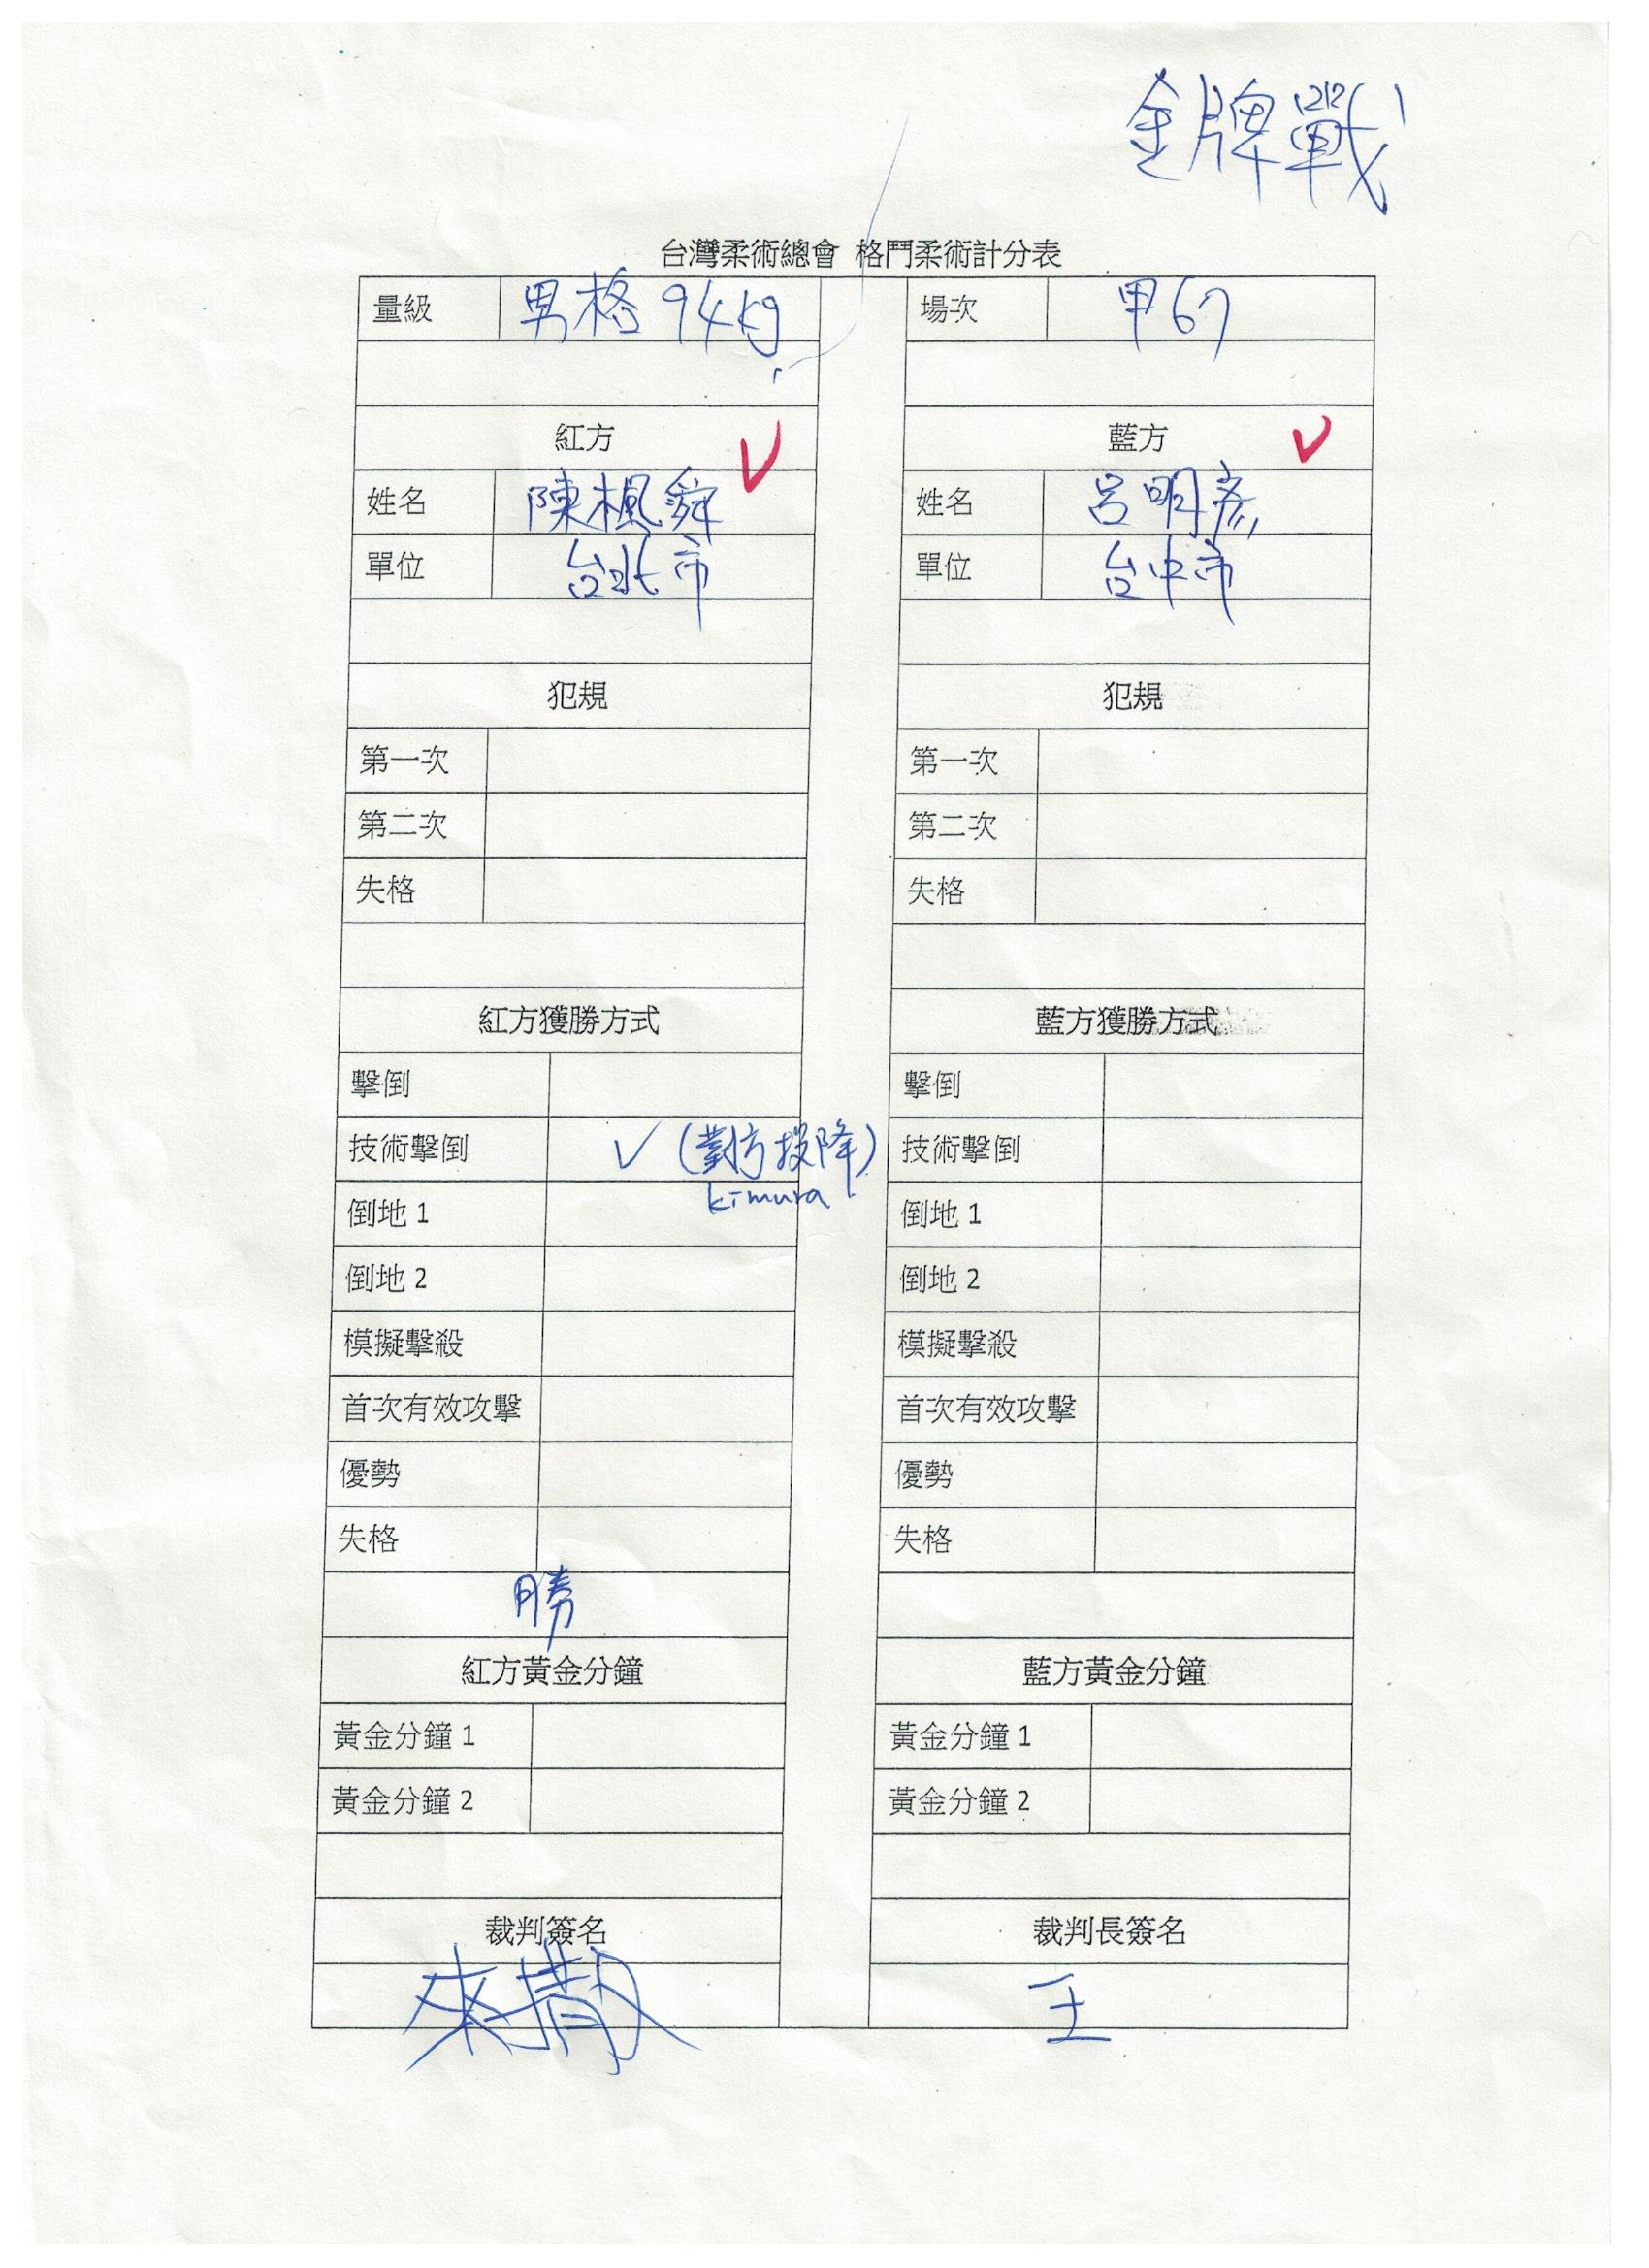 金牌戰
台灣柔術總會 格鬥柔術計分表
量級 男格 94kg 場次 甲67
紅方 藍方
姓名 陳楓舜 姓名 呂明彥
單位 台北市 單位 台中市
犯規 犯規
第一次 第一次
第二次 第二次
失格 失格
紅方獲勝方式 藍方獲勝方式
擊倒 擊倒
技術擊倒 ✓ (對方投降) 技術擊倒
kimura
倒地 1 倒地 1
倒地 2 倒地 2
模擬擊殺 模擬擊殺
首次有效攻擊 首次有效攻擊
優勢 優勢
失格 失格
勝
紅方黃金分鐘 藍方黃金分鐘
黃金分鐘 1 黃金分鐘 1
黃金分鐘 2 黃金分鐘 2
裁判簽名 裁判長簽名
王